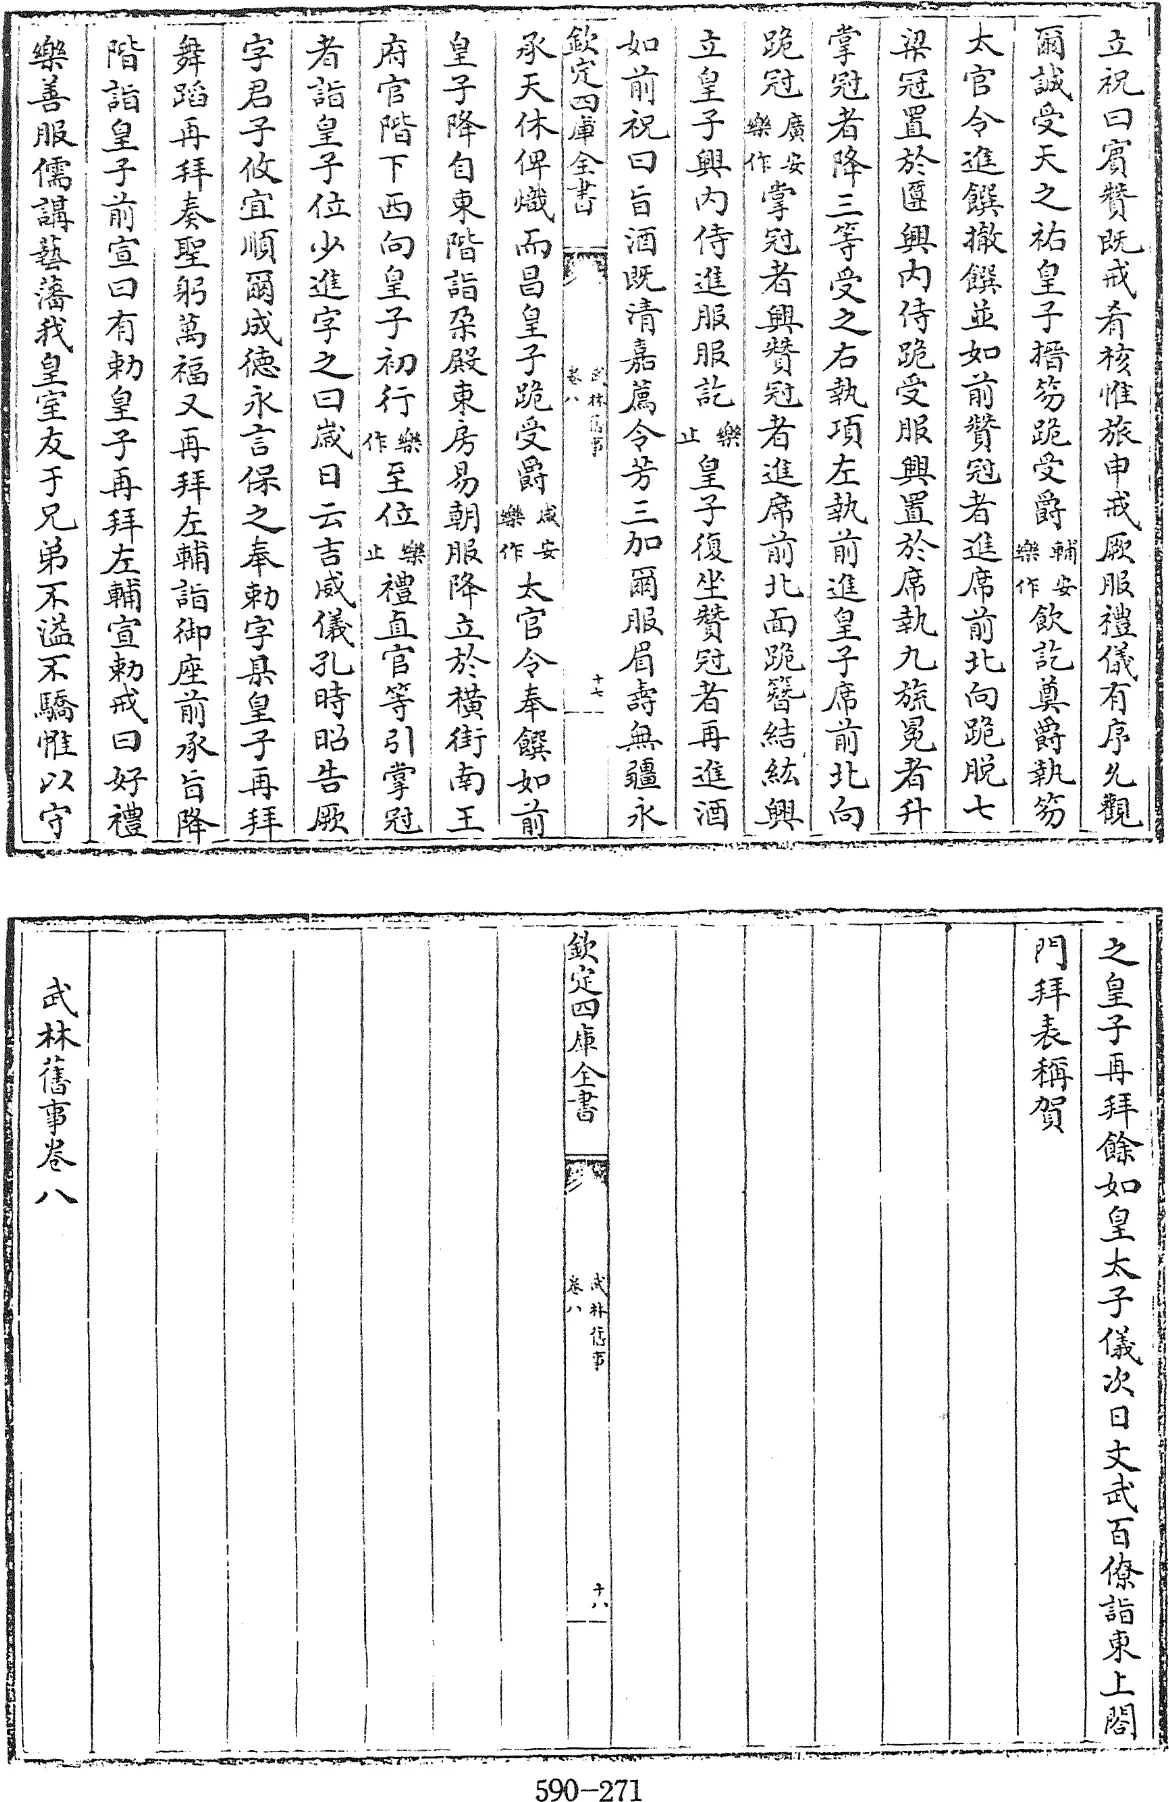 立祝曰賓贊既戒肴核惟旅申戒厥服禮儀有序允觀
爾誠受天之祐皇子搢笏跪受爵輔安樂作飲訖奠爵執笏
太官令進饌撤饌並如前贊冠者進席前北向跪脱七
梁冠置於匴興内侍跪受服興置於席執九旒冕者升
掌冠者降三等受之右執項左執前進皇子席前北向
跪冠廣安樂作掌冠者興贊冠者進席前北面跪簪結紘興
立皇子興内侍進服服訖樂止皇子復坐贊冠者再進酒
如前祝曰旨酒既清嘉薦令芳三加爾服眉壽無疆永
欽定四庫全書
武林舊事
卷八
十七
承天休俾熾而昌皇子跪受爵咸安樂作太官令奉饌如前
皇子降自東階詣朶殿東房易朝服降立於横街南王
府官階下西向皇子初行樂作至位樂止禮直官等引掌冠
者詣皇子位少進字之曰歳日云吉威儀孔時昭告厥
字君子攸宜順爾成徳永言保之奉勅字某皇子再拜
舞蹈再拜奏聖躬萬福又再拜左輔詣御座前承旨降
階詣皇子前宣曰有勅皇子再拜左輔宣勅戒曰好禮
樂善服儒講藝藩我皇室友于兄弟不溢不驕惟以守
之皇子再拜餘如皇太子儀次日文武百僚詣東上閤
門拜表稱賀
欽定四庫全書
武林舊事
卷八
十八
武林舊事卷八
590-271